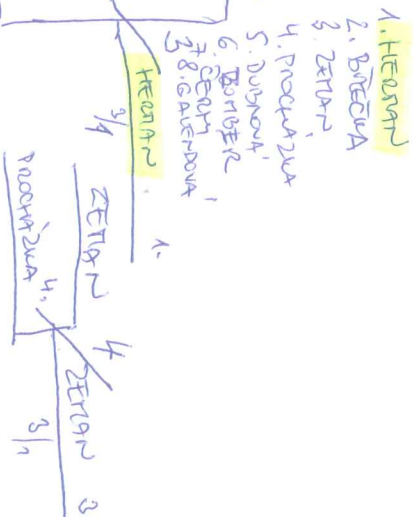 1. HERMAN
2. BŘEČKA
3. ZEMAN
4. PROCHÁZKA
5. DUBNOVÁ
6. BOMBER
7. ČERM
8. GALENDOVÁ
HERMAN
1.
3/1
ZEMAN
4
PROCHÁZKA 4.
ZEMAN 3
3/1